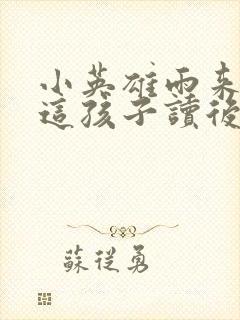 小英雄雨来
這孩子讀後
蘇從勇